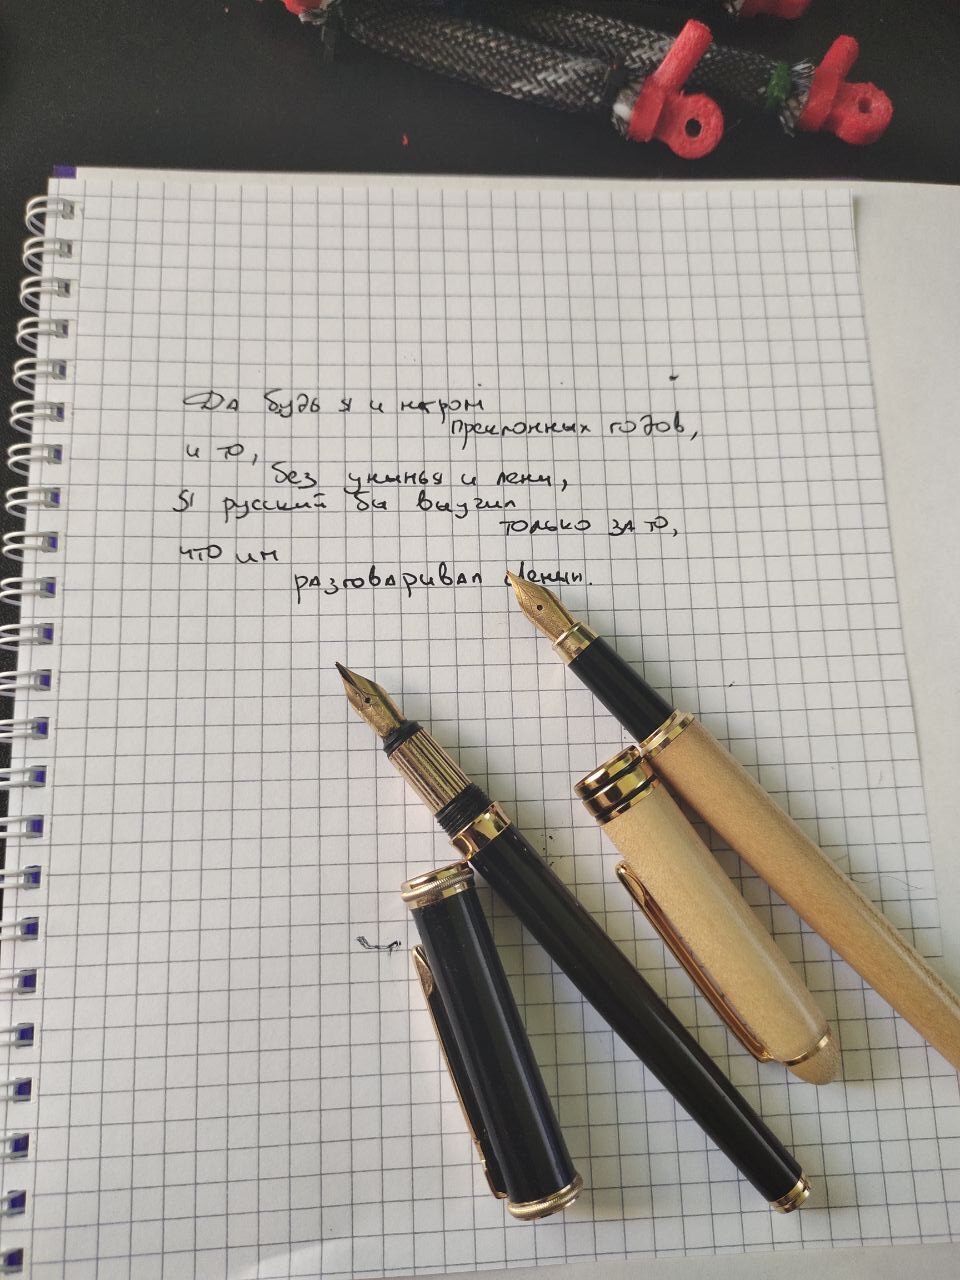 Да будь я и негром
преклонных годов,
и то,
без унынья и лени,
Я русский бы выучил
только за то,
что им
разговаривал Ленин.